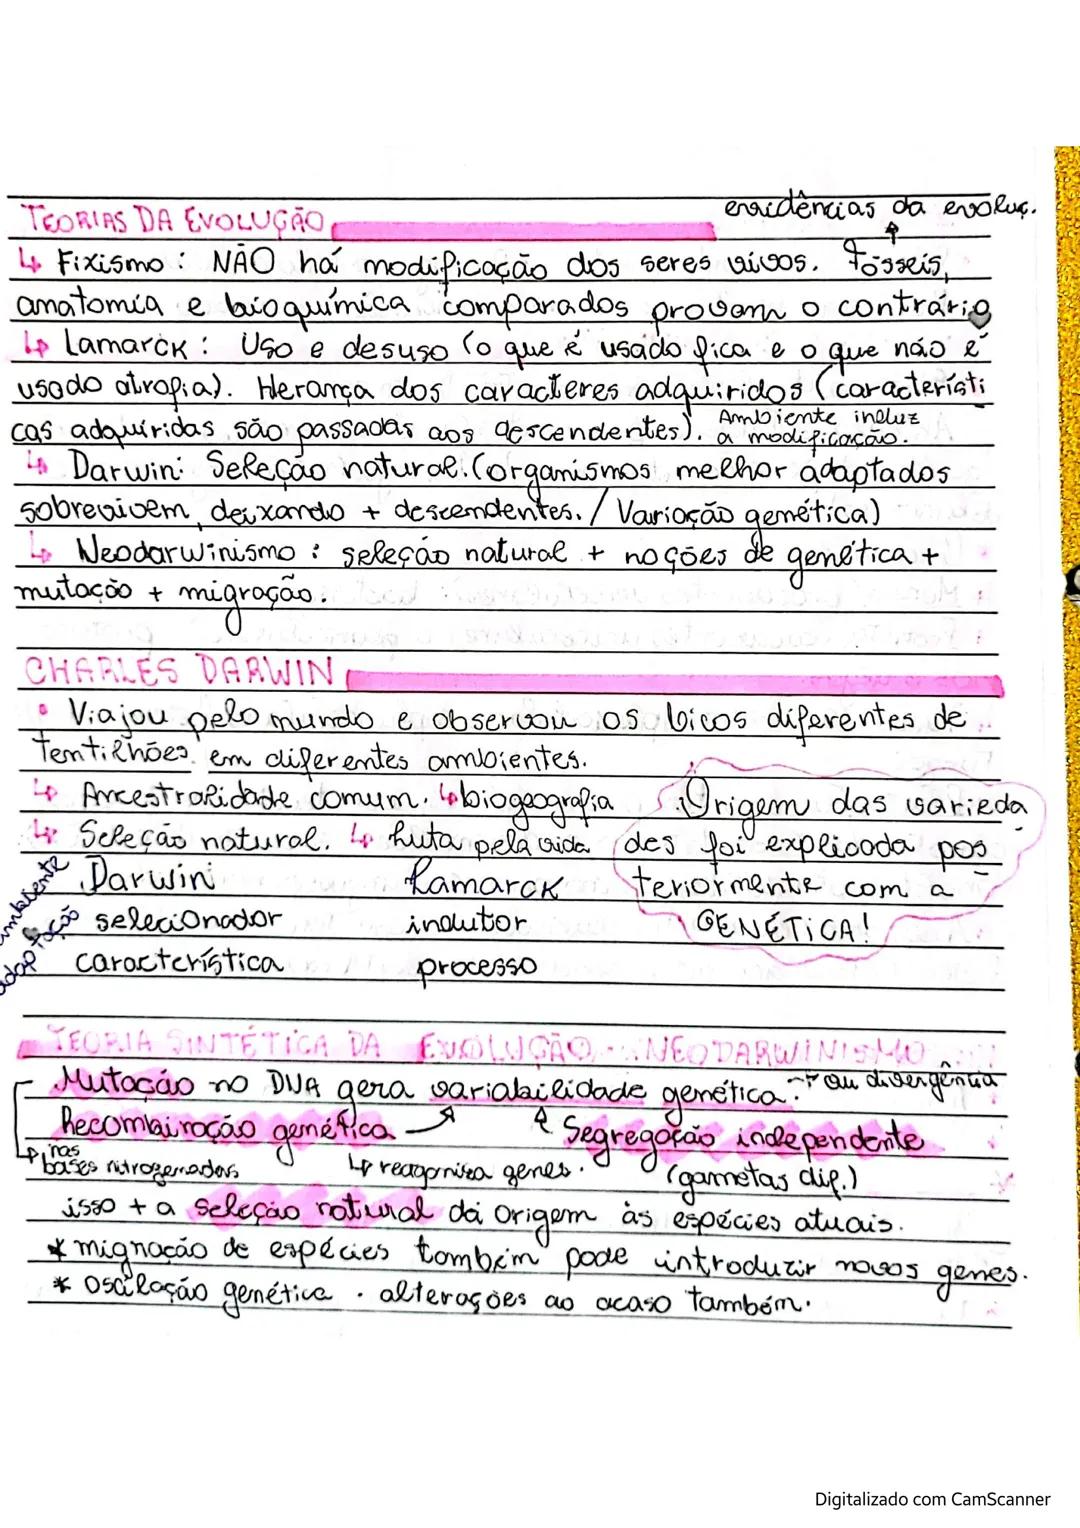 evidências da evoluç.
TEORIAS DA EVOLUÇÃO
↳ Fixismo: NÃO há modificação dos seres vivos. Fósseis,
anatomia e bioquímica comparados provam o contrário
↳ Lamarck: Uso e desuso (o que é usado fica e o que não é
usado atrofia). Herança dos caracteres adquiridos (característi
cas adquiridas são passadas aos descendentes). Ambiente induz
a modificação.
↳ Darwin: Seleção natural. (organismos melhor adaptados
sobrevivem, deixando + descendentes. / Variação genética)
↳ Neodarwinismo: seleção natural + noções de genética +
mutação + migração.
CHARLES DARWIN
• Viajou pelo mundo e observou os bicos diferentes de
tentilhões em diferentes ambientes.
↳ Ancestralidade comum. ↳ biogeografia
↳ Seleção natural. ↳ luta pela vida
Origem das varieda
des foi explicada pos
teriormente com a
GENÉTICA!
Darwin Lamarck
ambiente selecionador indutor
adaptação característica processo
TEORIA SINTÉTICA DA EVOLUÇÃO - NEODARWINISMO
Mutação no DNA gera variabilidade genética. → ou divergência
Recombinação genética Segregação independente
↳ nas bases nitrogenadas ↳ reorganiza genes. (gametas dif.)
isso + a seleção natural dá origem às espécies atuais.
* migração de espécies também pode introduzir novos genes.
* Oscilação genética. alterações ao acaso também.
Digitalizado com CamScanner